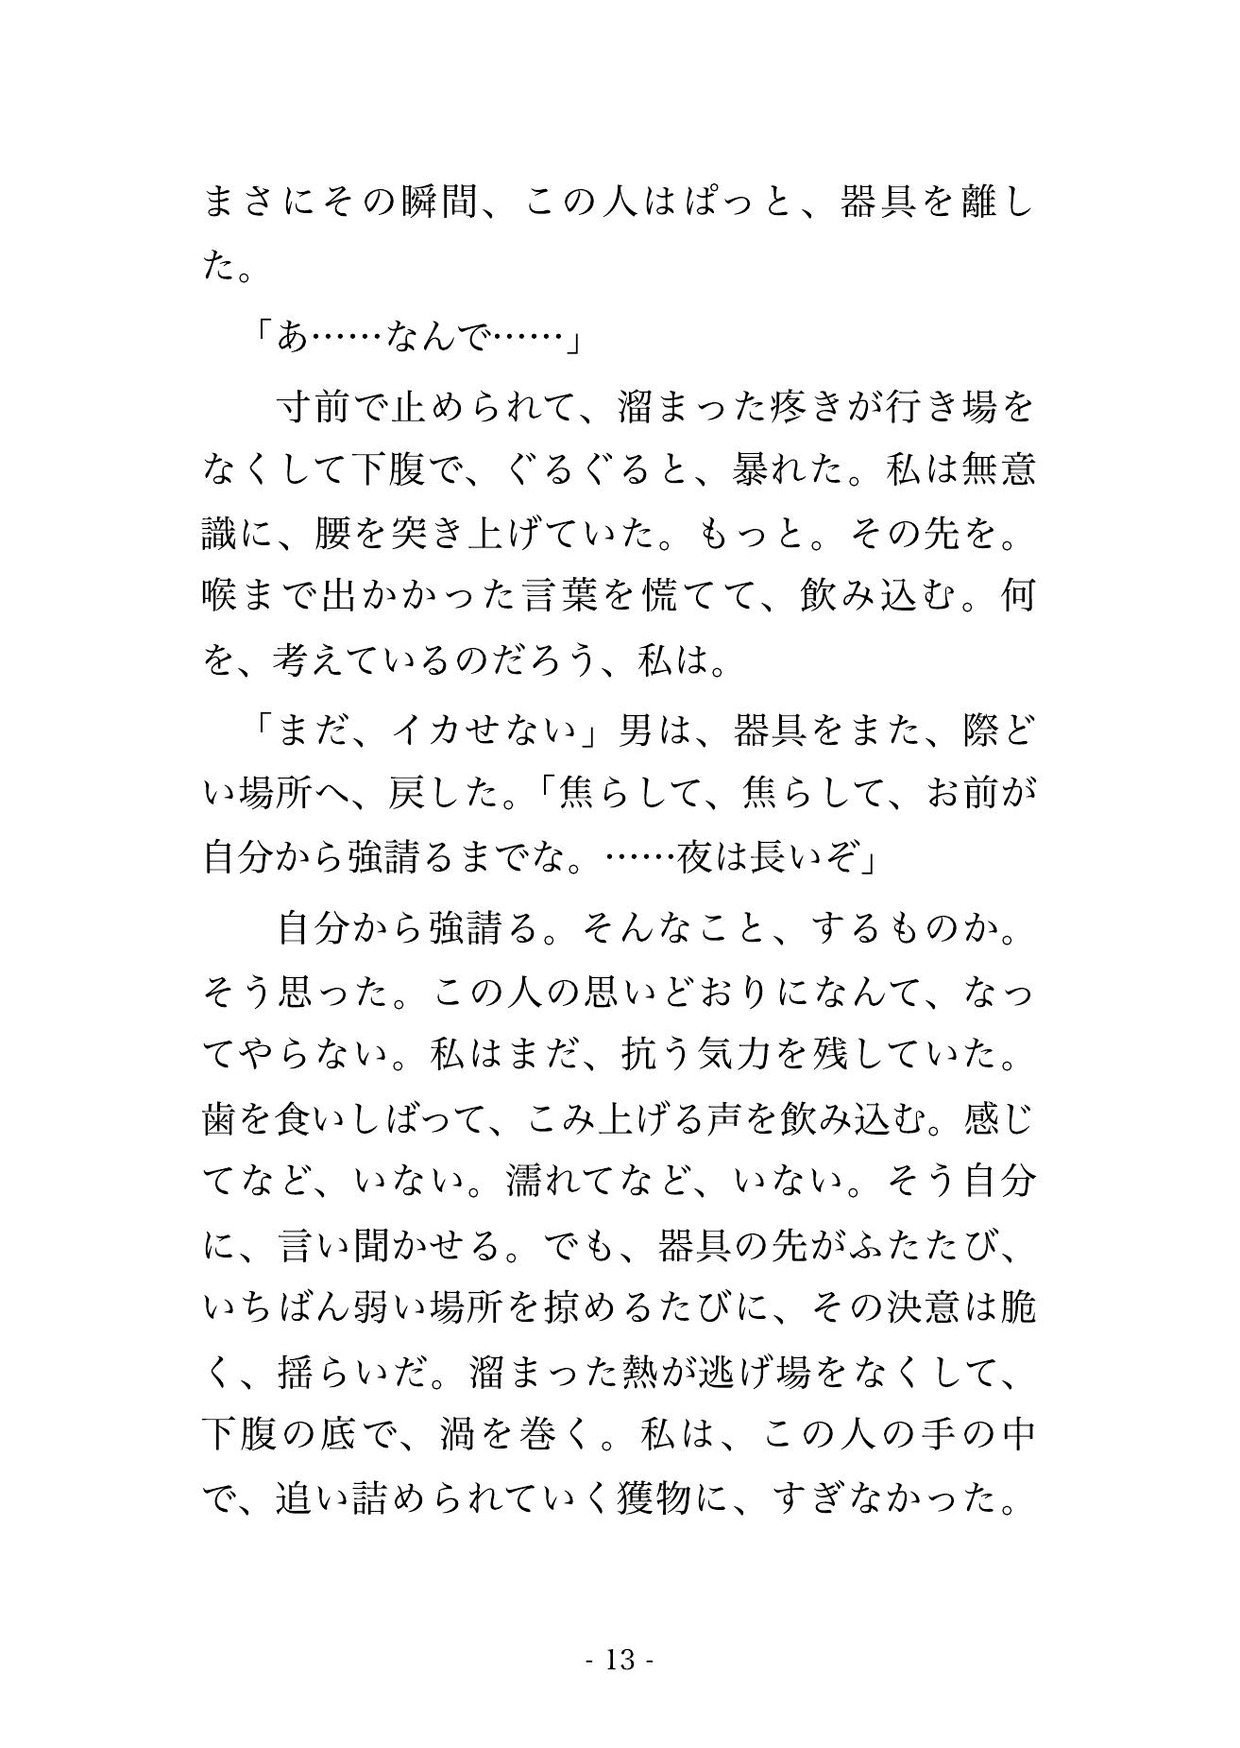 まさにその瞬間、この人はぱっと、器具を離し
た。
「あ……なんで……」
寸前で止められて、溜まった疼きが行き場を
なくして下腹で、ぐるぐると、暴れた。私は無意
識に、腰を突き上げていた。もっと。その先を。
喉まで出かかった言葉を慌てて、飲み込む。何
を、考えているのだろう、私は。
「まだ、イカせない」男は、器具をまた、際ど
い場所へ、戻した。「焦らして、焦らして、お前が
自分から強請るまでな。……夜は長いぞ」
自分から強請る。そんなこと、するものか。
そう思った。この人の思いどおりになんて、なっ
てやらない。私はまだ、抗う気力を残していた。
歯を食いしばって、こみ上げる声を飲み込む。感じ
てなど、いない。濡れてなど、いない。そう自分
に、言い聞かせる。でも、器具の先がふたたび、
いちばん弱い場所を掠めるたびに、その決意は脆
く、揺らいだ。溜まった熱が逃げ場をなくして、
下腹の底で、渦を巻く。私は、この人の手の中
で、追い詰められていく獲物に、すぎなかった。
- 13 -